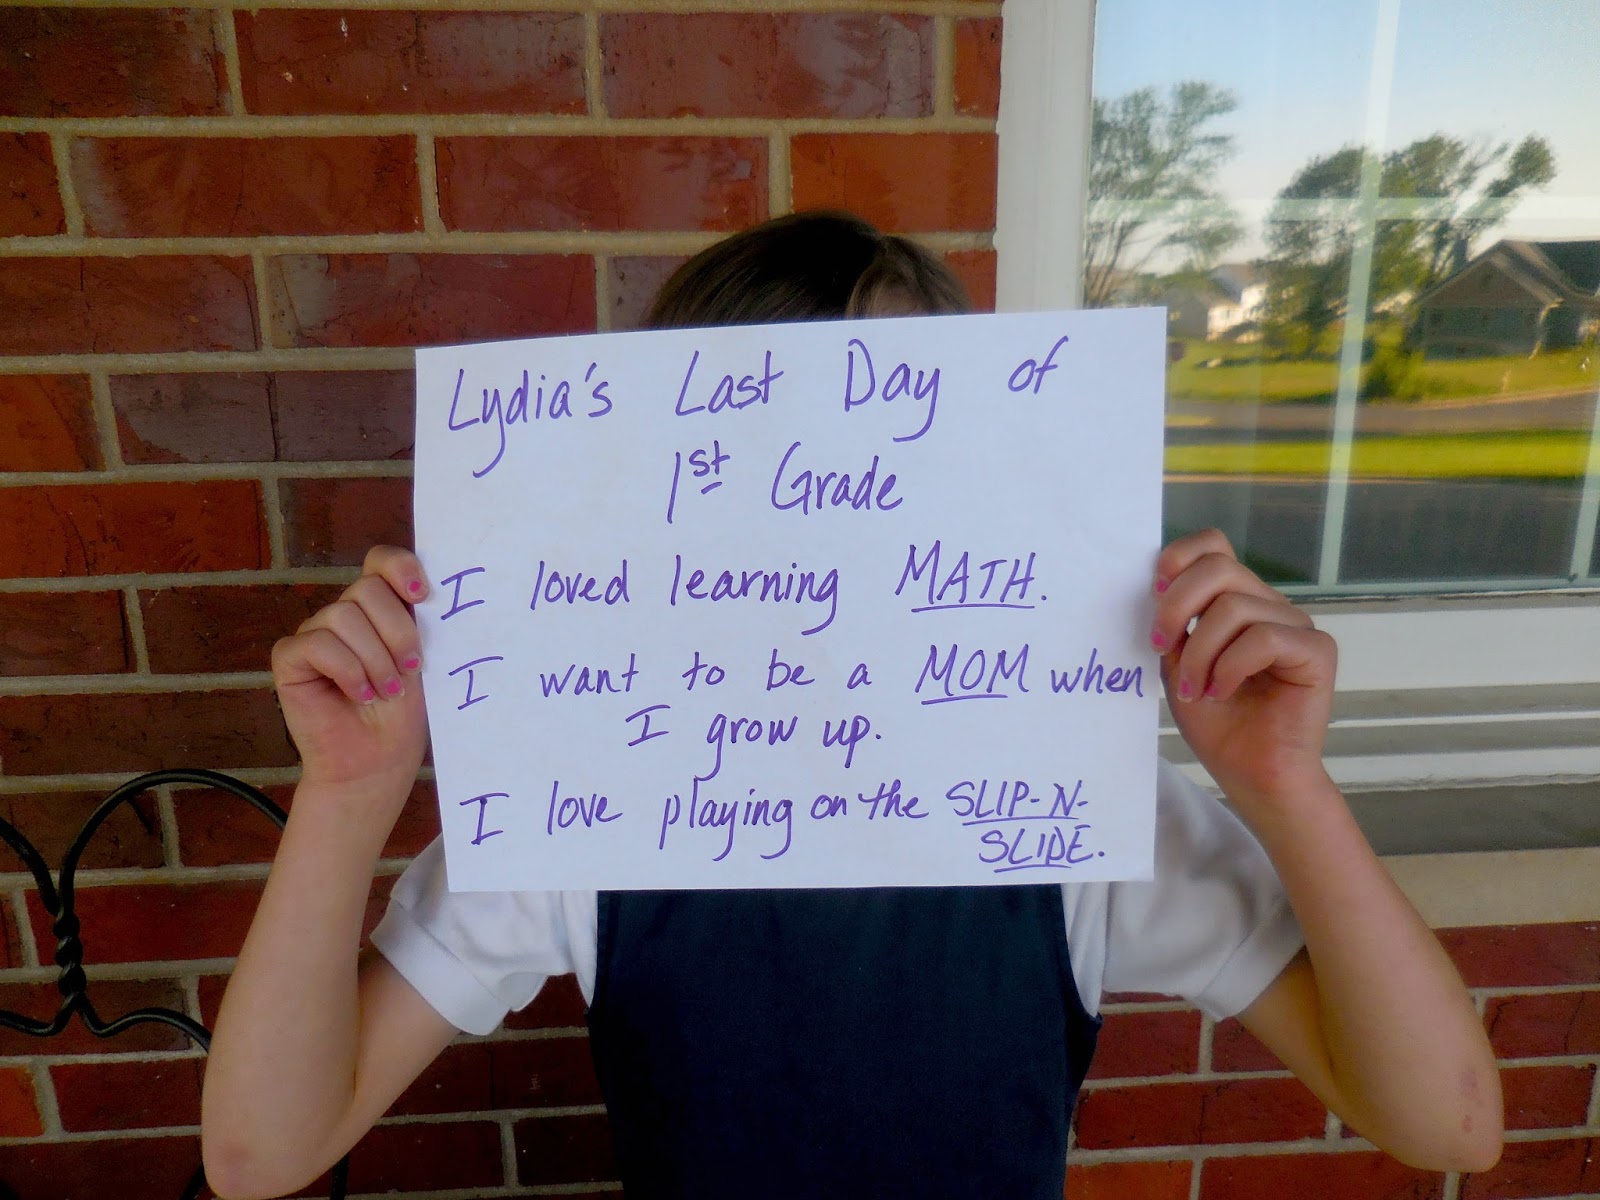 Lydia's Last Day of
1st Grade
I loved learning MATH.
I want to be a MOM when
I grow up.
I love playing on the SLIP-N-
SLIDE.